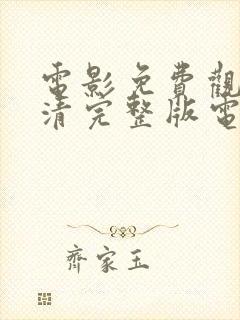 電影免費觀
清完整版電
齊家玉